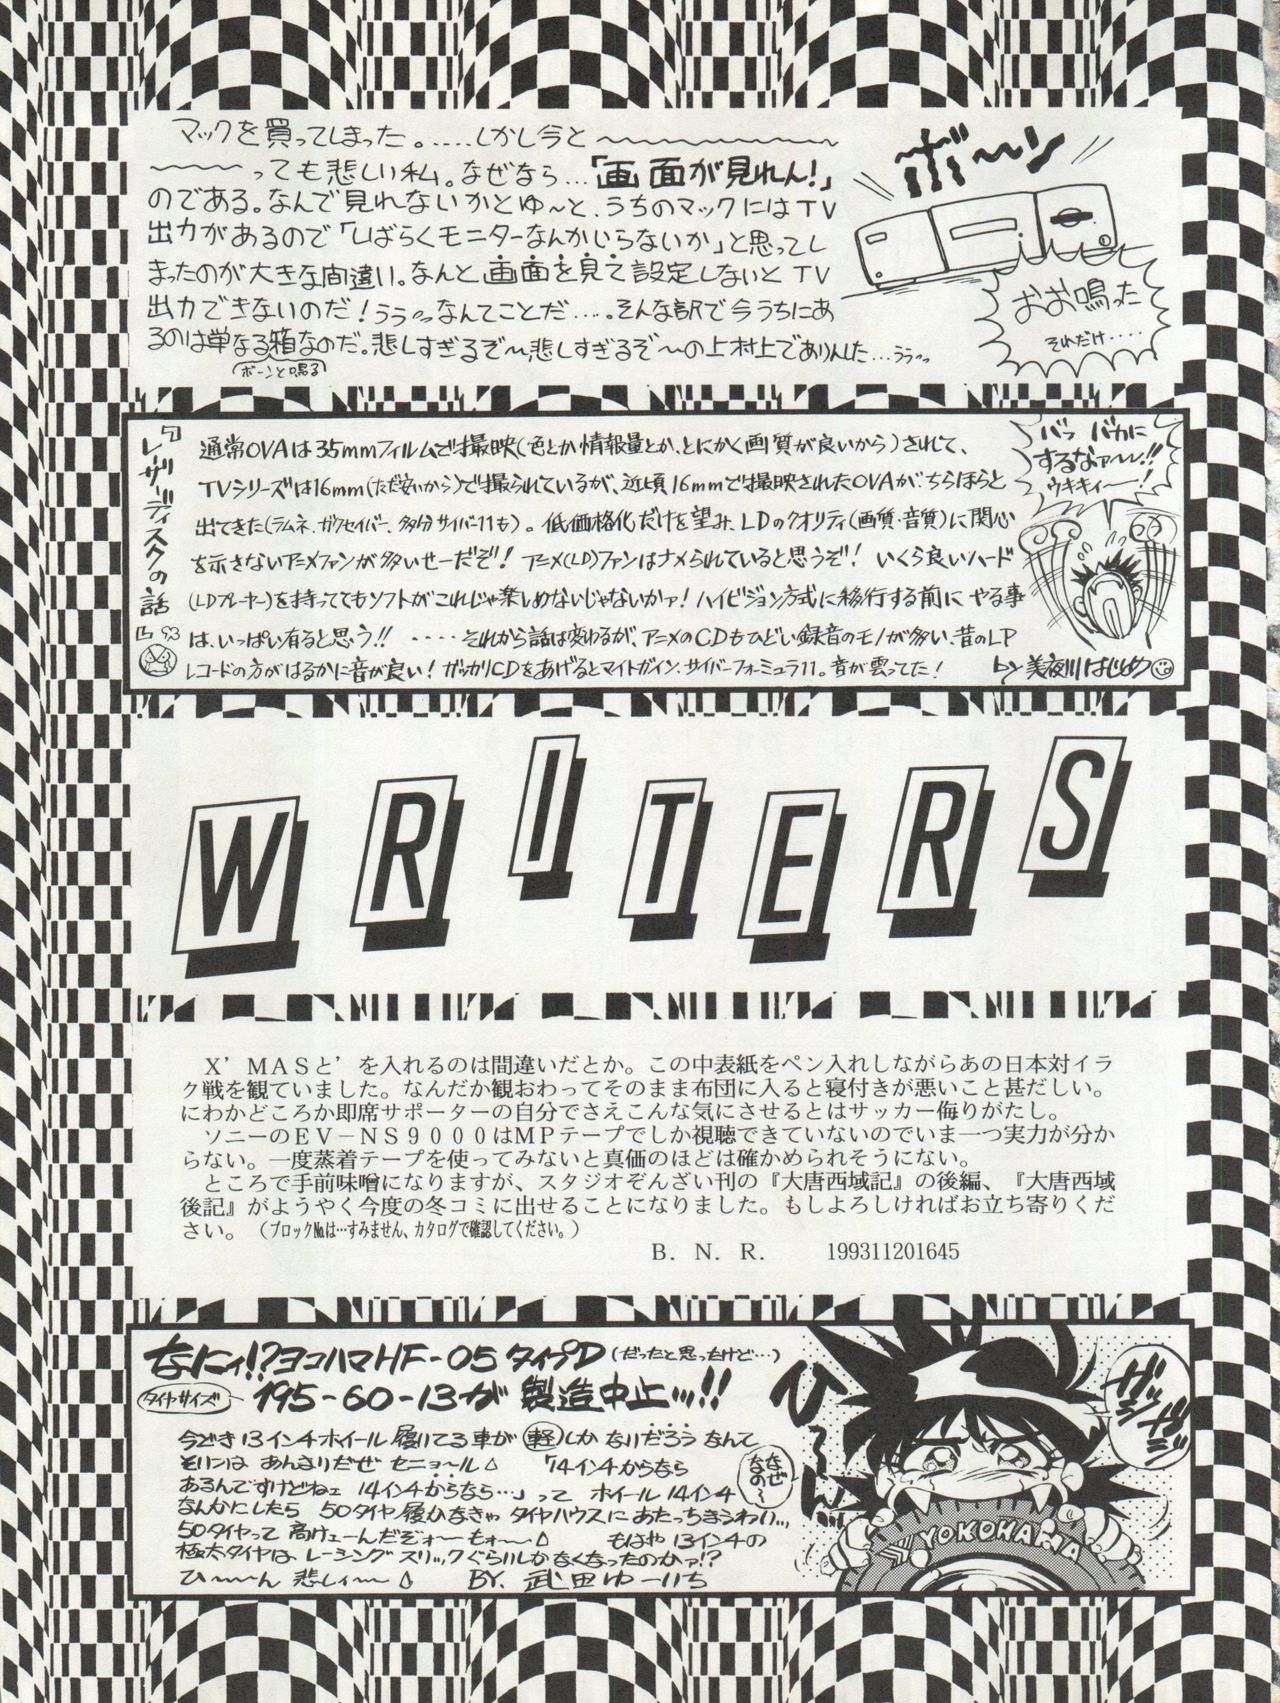 マックを買ってしまった。.....しかし今と〜〜〜〜〜〜〜〜
〜〜〜〜っても悲しい私。なぜなら...「画面が見れん!」
のである。なんで見れないかとゆ〜と、うちのマックにはTV
出力があるので「しばらくモニターなんかいらないか」と思ってし
まったのが大きな間違い。なんと画面を見て設定しないとTV
出力できないのだ!ううっなんてことだ.....そんな訳で今うちにあ
るのは単なる箱なのだ。悲しすぎるぞ〜悲しすぎるぞ〜の上村上でありんした...ううっ
(ボーンと鳴る)
ボ〜ン
おお鳴った
それだけ....
「レーザーディスクの話
'93
通常OVAは35mmフィルムで撮映(色とか情報量とか、とにかく画質が良いから)されて、
TVシリーズは16mm(ただ安いから)で撮られているが、近頃16mmで撮映されたOVAが、ちらほらと
出てきた(ラムネ、ガクセイバー、多分サイバー11も)。低価格化だけを望み、LDのクオリティ(画質、音質)に関心
を示さないアニメファンが多いせーだぞ!アニメ(LD)ファンはナメられていると思うぞ!いくら良いハード
(LDプレーヤー)を持っててもソフトがこれじゃ楽しめないじゃないかァ!ハイビジョン方式に移行する前にやる事
は、いっぱい有ると思う!!.....それから話は変わるが、アニメのCDもひどい録音のモノが多い、昔のLP
レコードの方がはるかに音が良い!ガッカリCDをあげるとマイトガイン、サイバーフォーミュラ11。音が曇ってた!
バっ バカに
するなァ〜〜!!
ウキキィ〜〜!
by 美夜川はじめ
WRITERS
X'MASと'を入れるのは間違いだとか。この中表紙をペン入れしながらあの日本対イラ
ク戦を観ていました。なんだか観おわってそのまま布団に入ると寝付きが悪いこと甚だしい。
にわかどころか即席サポーターの自分でさえこんな気にさせるとはサッカー侮りがたし。
ソニーのEV−NS9000はMPテープでしか視聴できていないのでいま一つ実力が分か
らない。一度蒸着テープを使ってみないと真価のほどは確かめられそうにない。
ところで手前味噌になりますが、スタジオぞんざい刊の『大唐西域記』の後編、『大唐西域
後記』がようやく今度の冬コミに出せることになりました。もしよろしければお立ち寄りくだ
さい。(ブロック№は…すみません、カタログで確認してください。)
B．N．R． 199311201645
なにィ!?ヨコハマHF-05タイプD(だったと思ったけど...)
タイヤサイズ 195-60-13が製造中止ッ!!
今どき13インチホイール履いてる車が軽しかないだろうなんて
そりンは あんまりだぜ セニョール 「14インチからなら
あるんですけどねェ 14インチからなら...」って ホイール14インチ
なんかにしたら 50タイヤ履かなきゃ タイヤハウスにあたっちまうわい...
50タイヤって高けェーんだぞォー もォー もはや13インチの
極太タイヤは レーシングスリックぐらいしかなくなったのかァ!?
ひ〜〜ん 悲しィ〜〜 BY. 武田ゆーいち
なぜなの〜
ひ〜〜ん
YOKOHAMA